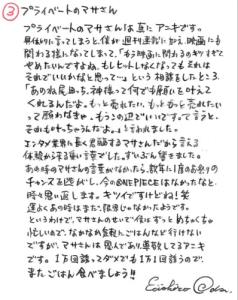 ③ プライベートのマサさん
プライベートのマサさんは真にアニキです。
に言ってしまうと、僕が週刊連載に加え、映画にも
関わる様になってしまし、「もう映画に関わるのキツすぎて
やめたいんですよね。もしヒットしなくなってもそれは
それでいいかなと思って…」という相談をしたところ
「あのね尾田っち、神様って何でも願いを叶えて
くれるんだよ。もっと売れたい、もっともっと売れたい
って願わなきゃ、もうこの辺でいいです。って言うと、
それも叶っちゃうんだよ。」と言われました。
エンタメ業界に長く君臨するマサさんだから言える
体験からする重い言葉でした。ずいぶん響きました。
あの時のマサさんの言葉がなかったら、数年に1度のお祭りの
チャンスを逃がし、今のONE PIECEはなかったなと、
時々思い返します。キツイですけどね!笑
運よくあの時はまだ、限界じゃなかったようです。
というわけで、マサさんのせいで僕はずっとめちゃくちゃ
忙しいので、なかなか気軽にごはんなど行けない
ですが、マサさんは恩人であり、尊敬してるアニキ
です。1万回談々、マダメでも1万1回誘うので、
またごはん食べましょう!!
Eiichiro Oda.